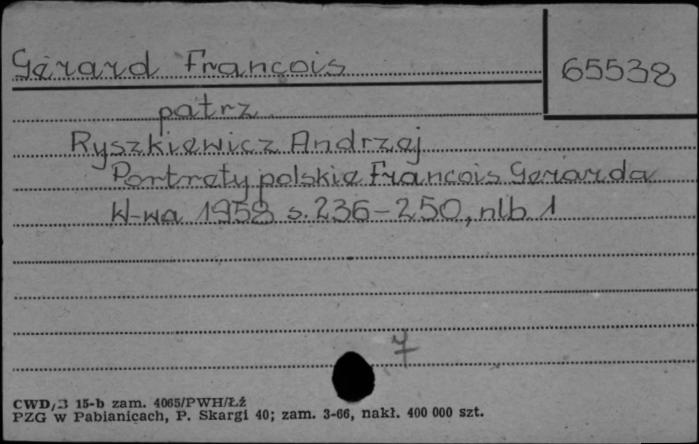 Gérard François 65538
patrz
Ryszkiewicz Andrzej
Portrety polskie François Gerarda
W-wa 1958 s. 236-250, nlb 1
7
CWD/3 15-b zam. 4065/PWH/Łź
PZG w Pabianicach, P. Skargi 40; zam. 3-66, nakł. 400 000 szt.